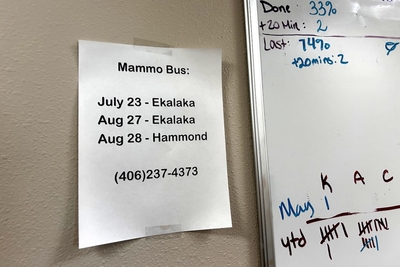 Mammo Bus:
July 23 - Ekalaka
Aug 27 - Ekalaka
Aug 28 - Hammond
(406)237-4373
Done: 33%
+20 Min: 2
Last: 74%
+20mins: 2
K A C
May 1
ytd